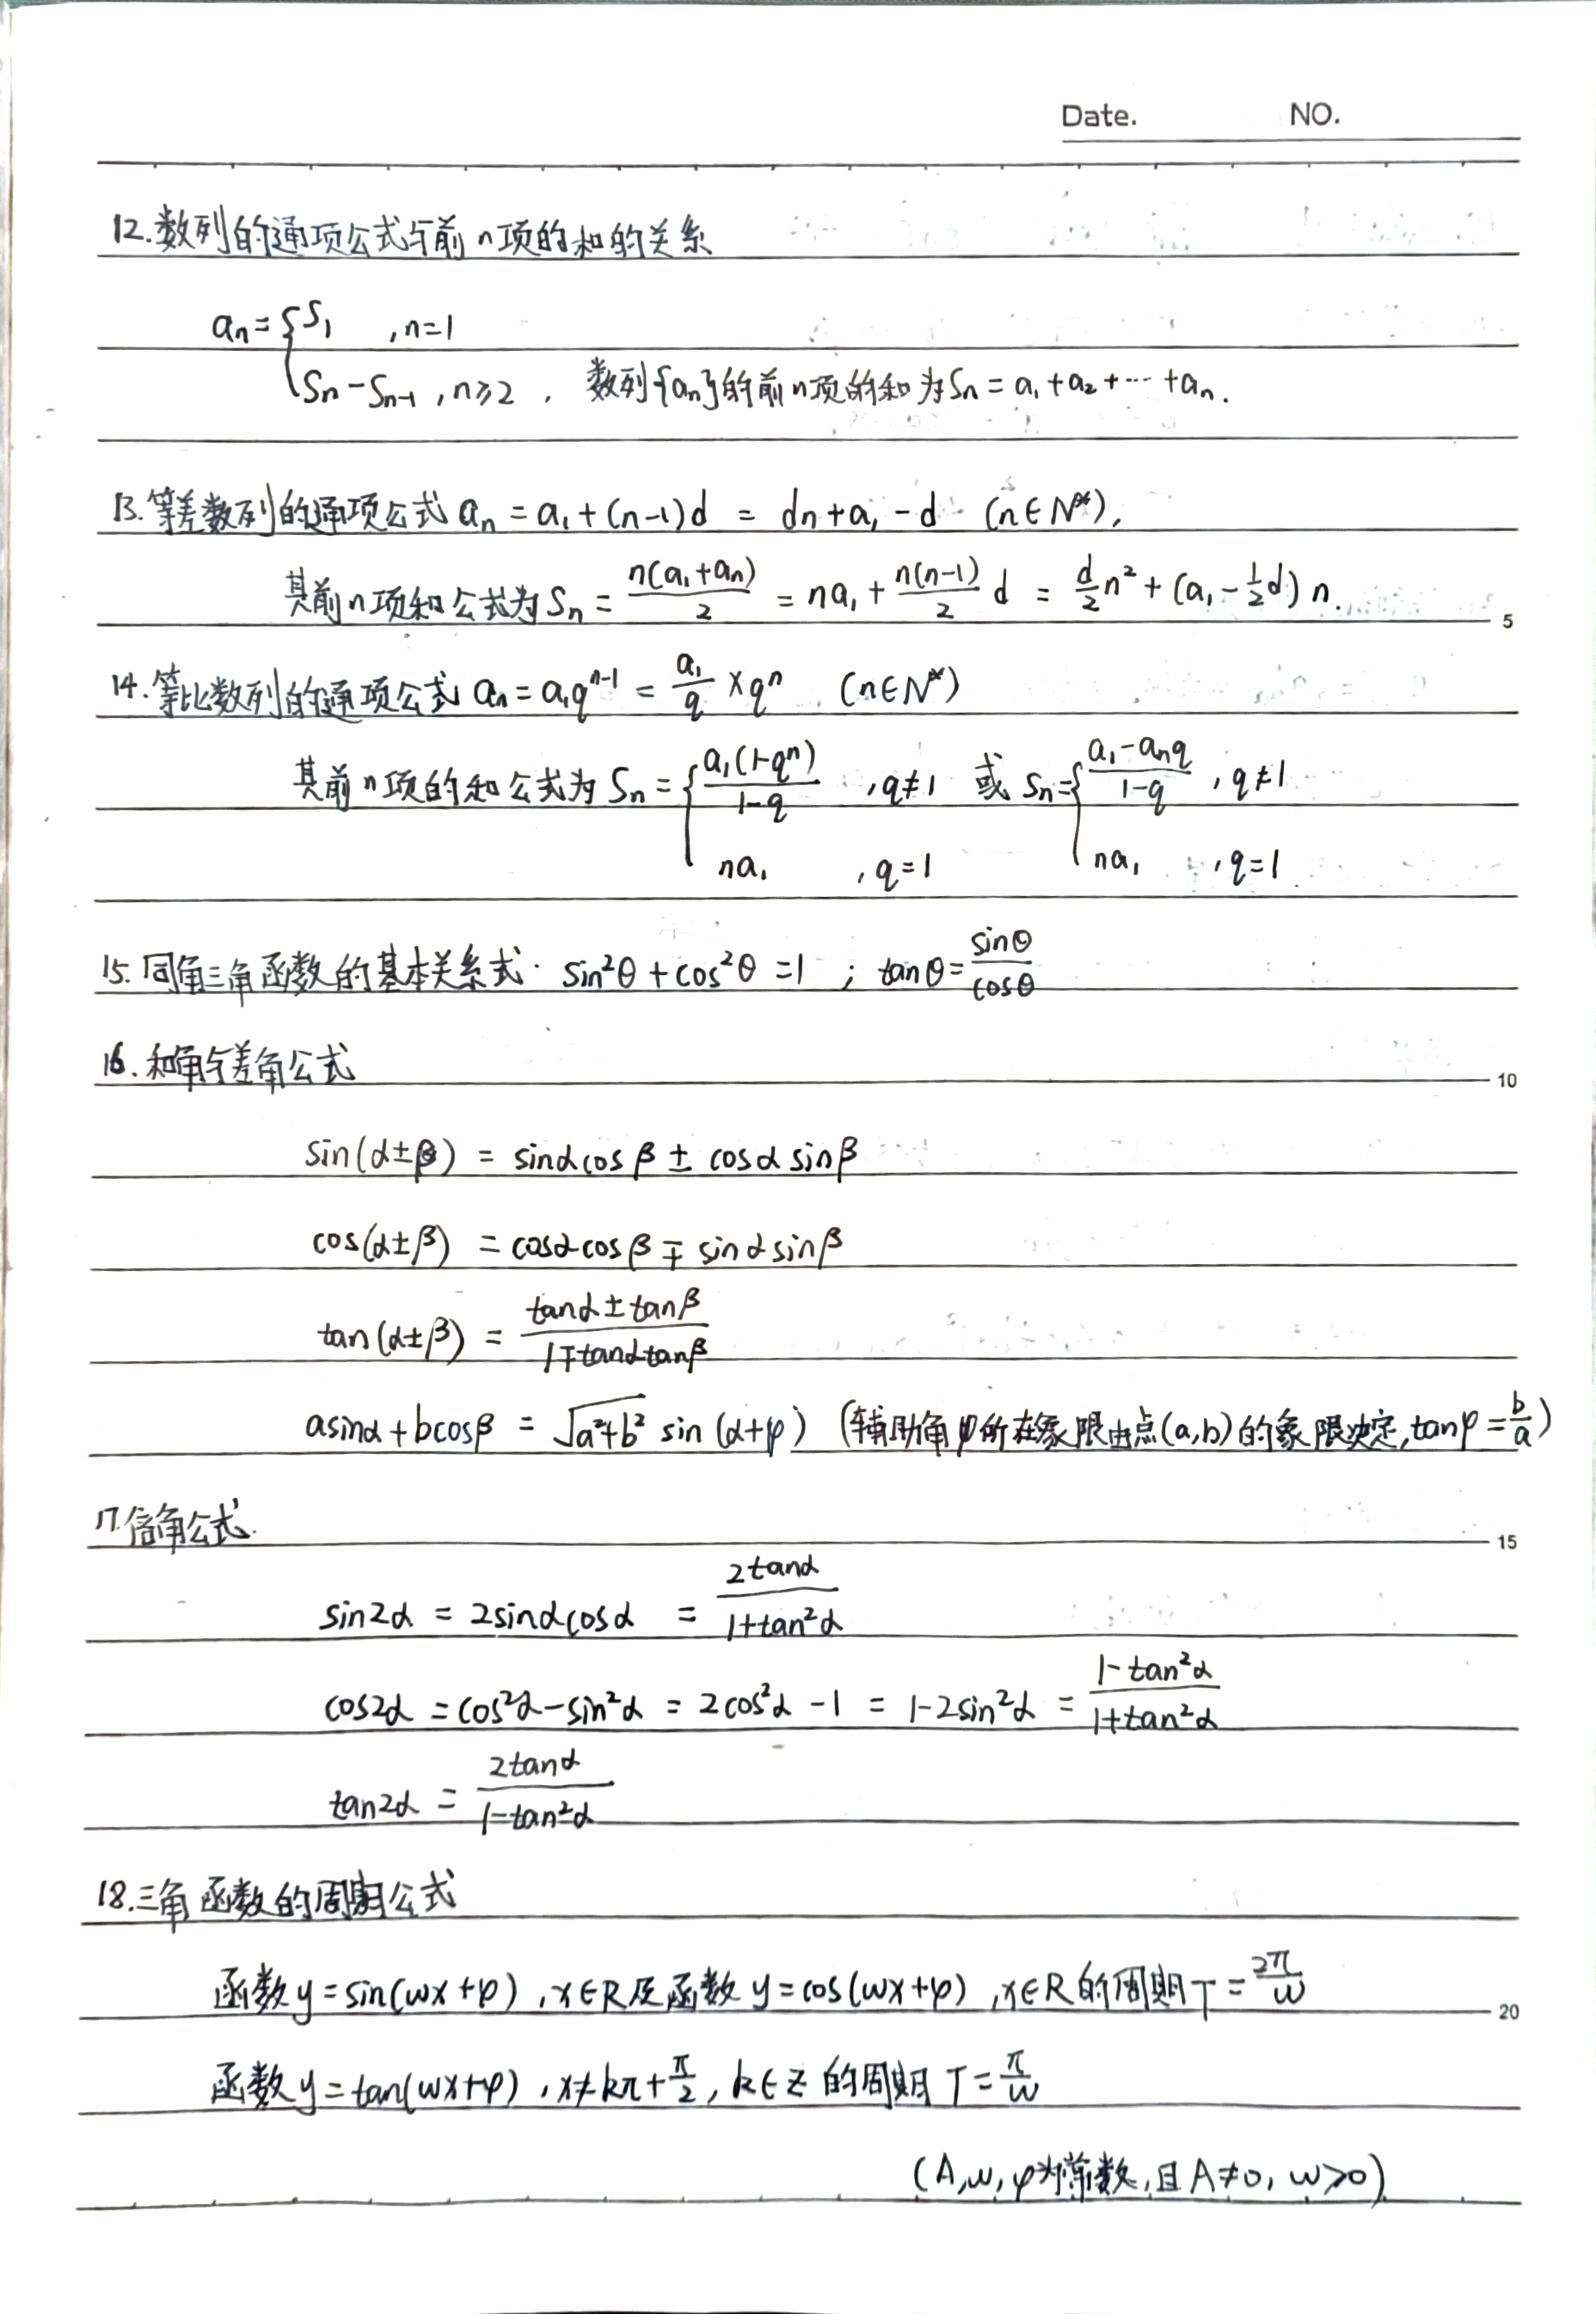 Date. NO.
12.数列的通项公式与前n项的和的关系
aₙ={S₁ ,n=1
Sₙ-Sₙ₋₁ ,n≥2 , 数列{aₙ}的前n项的和为Sₙ=a₁+a₂+…+aₙ.
13.等差数列的通项公式 aₙ=a₁+(n-1)d = dn+a₁-d (n∈N*),
其前n项和公式为Sₙ=n(a₁+aₙ)/2 = na₁+n(n-1)/2 d = d/2 n²+(a₁-1/2d)n.
5
14.等比数列的通项公式 aₙ=a₁qⁿ⁻¹=a₁/q×qⁿ (n∈N*)
其前n项的和公式为Sₙ={a₁(1-qⁿ)/1-q ,q≠1 或 Sₙ={a₁-aₙq/1-q ,q≠1
na₁ ,q=1 na₁ ,q=1
15.同角三角函数的基本关系式. sin²θ+cos²θ=1 ; tanθ=sinθ/cosθ
16.和角与差角公式
10
sin(α±β) = sinαcosβ ± cosαsinβ
cos(α±β) = cosαcosβ∓sinαsinβ
tan(α±β) = tanα±tanβ/1∓tanαtanβ
asinα+bcosβ = √a²+b² sin(α+φ) (辅助角φ所在象限由点(a,b)的象限决定,tanφ=b/a)
17.倍角公式.
15
sin2α = 2sinαcosα = 2tanα/1+tan²α
cos2α = cos²α-sin²α = 2cos²α-1 = 1-2sin²α = 1-tan²α/1+tan²α
tan2α = 2tanα/1-tan²α
18.三角函数的周期公式
函数y=sin(ωx+φ),x∈R及函数y=cos(ωx+φ),x∈R的周期T=2π/ω
20
函数y=tan(ωx+φ),x≠kπ+π/2,k∈Z的周期T=π/ω
(A,ω,φ为常数,且A≠0,ω>0)